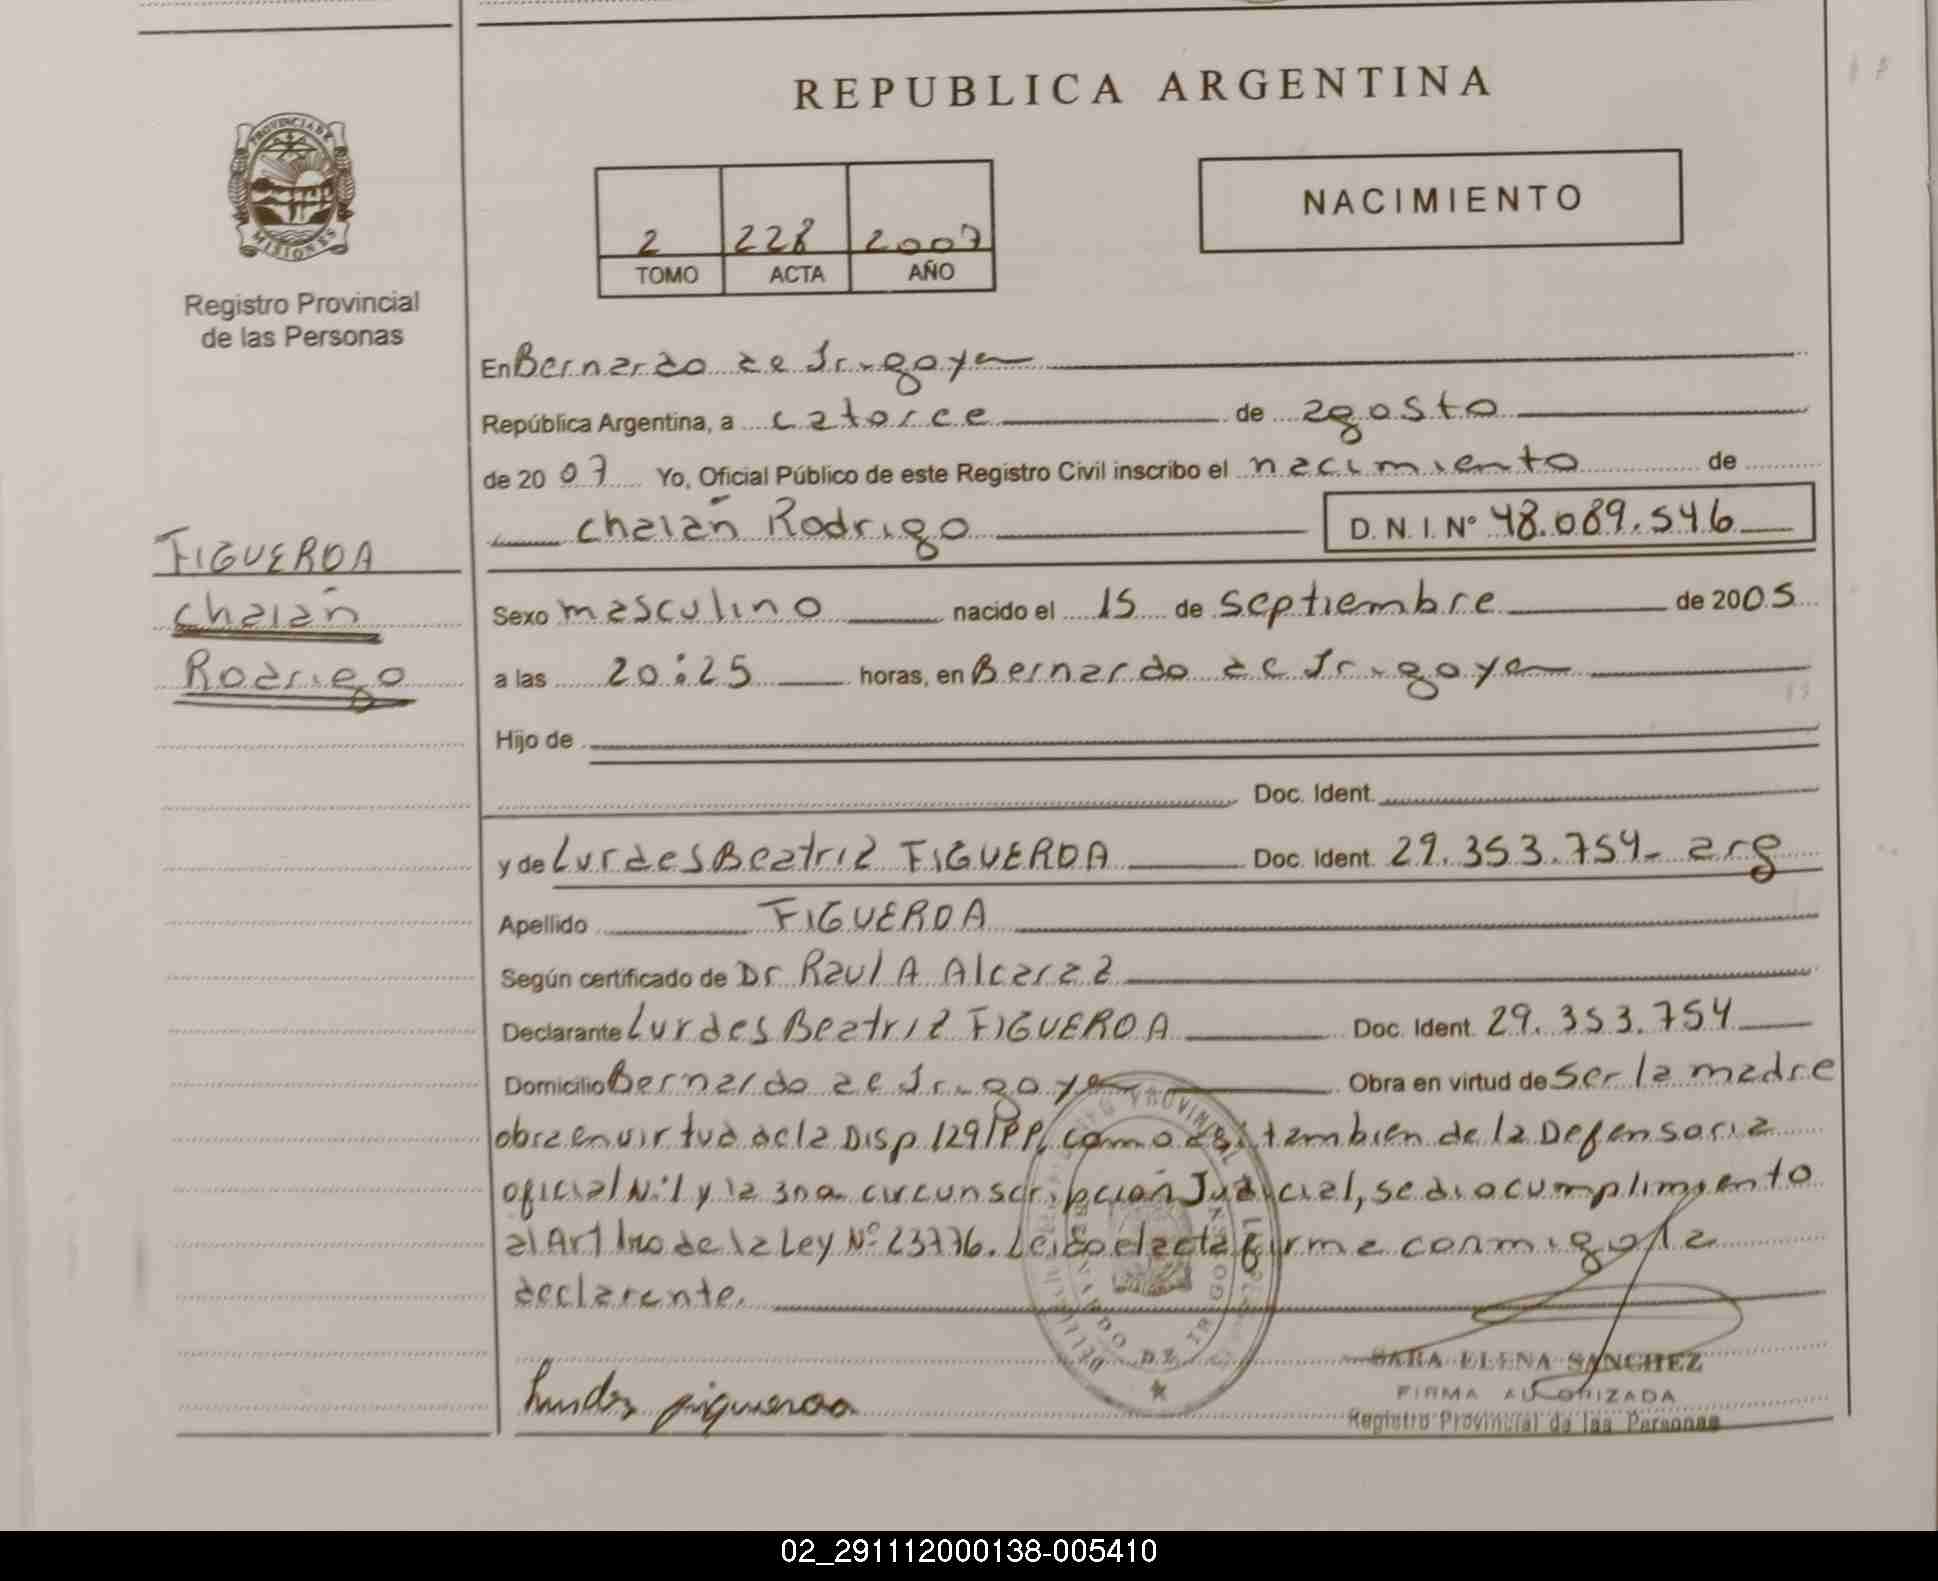 REPUBLICA ARGENTINA
PROVINCIA DE
MISIONES
Registro Provincial
de las Personas
2 228 2007
TOMO ACTA AÑO
NACIMIENTO
En Bernardo de Irigoyen
República Argentina, a catorce de agosto
de 2007 Yo, Oficial Público de este Registro Civil inscribo el nacimiento de
Chaian Rodrigo D. N. I. Nº 48.089.546
FIGUEROA
Chaian
Rodrigo
Sexo masculino nacido el 15 de septiembre de 2005
a las 20:25 horas, en Bernardo de Irigoyen
Hijo de
Doc. Ident.
y de Lurdes Beatriz FIGUEROA Doc. Ident. 29.353.754- arg
Apellido FIGUEROA
Según certificado de Dr Raul A Alcaraz
Declarante Lurdes Beatriz FIGUEROA Doc. Ident. 29.353.754
Domicilio Bernardo de Irigoyen Obra en virtud de ser la madre
obra en virtud de la Disp 129/PP, como asi tambien de la Defensoria
oficial N:1 y la 3ra circunscripción Judicial, se dio cumplimiento
al Art 1ro de la Ley Nº 23776. Leido el acta firma conmigo la
declarente.
Lurdes figueroa
SARA ELENA SANCHEZ
FIRMA AUTORIZADA
Registro Provincial de las Personas
BERNARDO DE IRIGOYEN
02_291112000138-005410